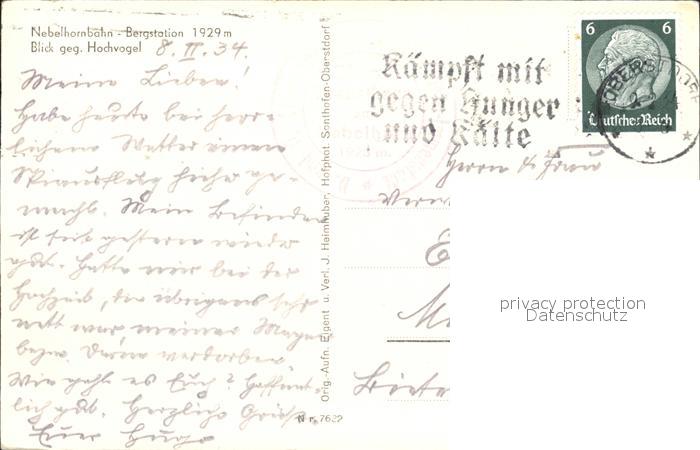 Nebelhornbahn - Bergstation 1929 m
Blick geg. Hochvogel
8. II. 34.
Meine Lieben!
Habe heute bei herr-
lichem Wetter einen
Skiausflug hieher ge-
macht. Mein Befinden
ist seit gestern wieder
gut. Hatte mir bei der
Hochzeit, die übrigens sehr
nett war meinen Magen
bezw. Darm verdorben
Wie geht es Euch? Hoffent-
lich gut. Herzliche Grüße
Euer Hugo
Orig.-Aufn. Eigent u. Verl. J. Heimhuber, Hofphot. Sonthofen-Oberstdorf
Nr. 7622
Kämpft mit
gegen Hunger
und Kälte
6 6
Deutsches Reich
OBERSTDORF
Herrn u. Frau
privacy protection
Datenschutz